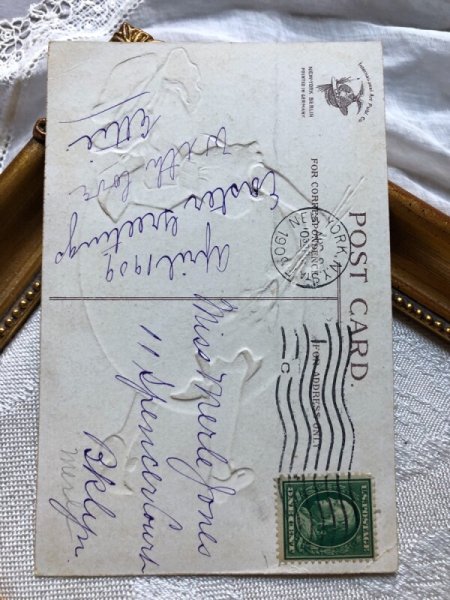 POST CARD.
FOR CORRESPONDENCE
FOR ADDRESS ONLY
NEW-YORK BERLIN
PRINTED IN GERMANY.
April 1909
Easter greetings
With love
YORK, N.Y.
1909
N
C
U.S. POSTAGE
ONE CENT
Miss Merle Jones
11 Spencer Court
Bklyn.